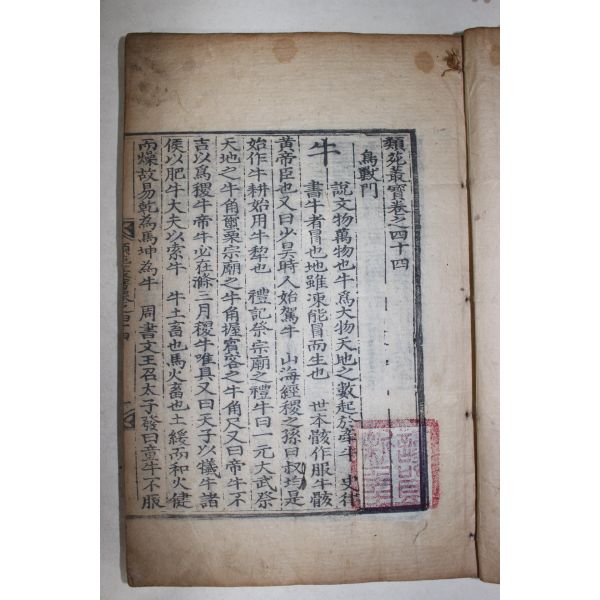 類苑叢寶卷之四十四
鳥獸門
牛
說文物萬物也牛爲大物天地之數起於牽牛 史律
書牛者冒也地雖凍能冒而生也 世本骸作服牛骸
黃帝臣也又曰少昊時人始駕牛 山海經稷之孫曰叔均是
始作牛耕始用牛犂也 禮記祭宗廟之禮牛曰一元大武祭
天地之牛角繭栗宗廟之牛角握賓客之牛角尺又曰帝牛不
吉以爲稷牛帝牛必在滌三月稷牛唯具又曰天子以犧牛諸
侯以肥牛大夫以索牛 牛土畜也馬火畜也土緩而和火健
而燥故易乾為馬坤為牛 周書文王召太子發曰童牛不服